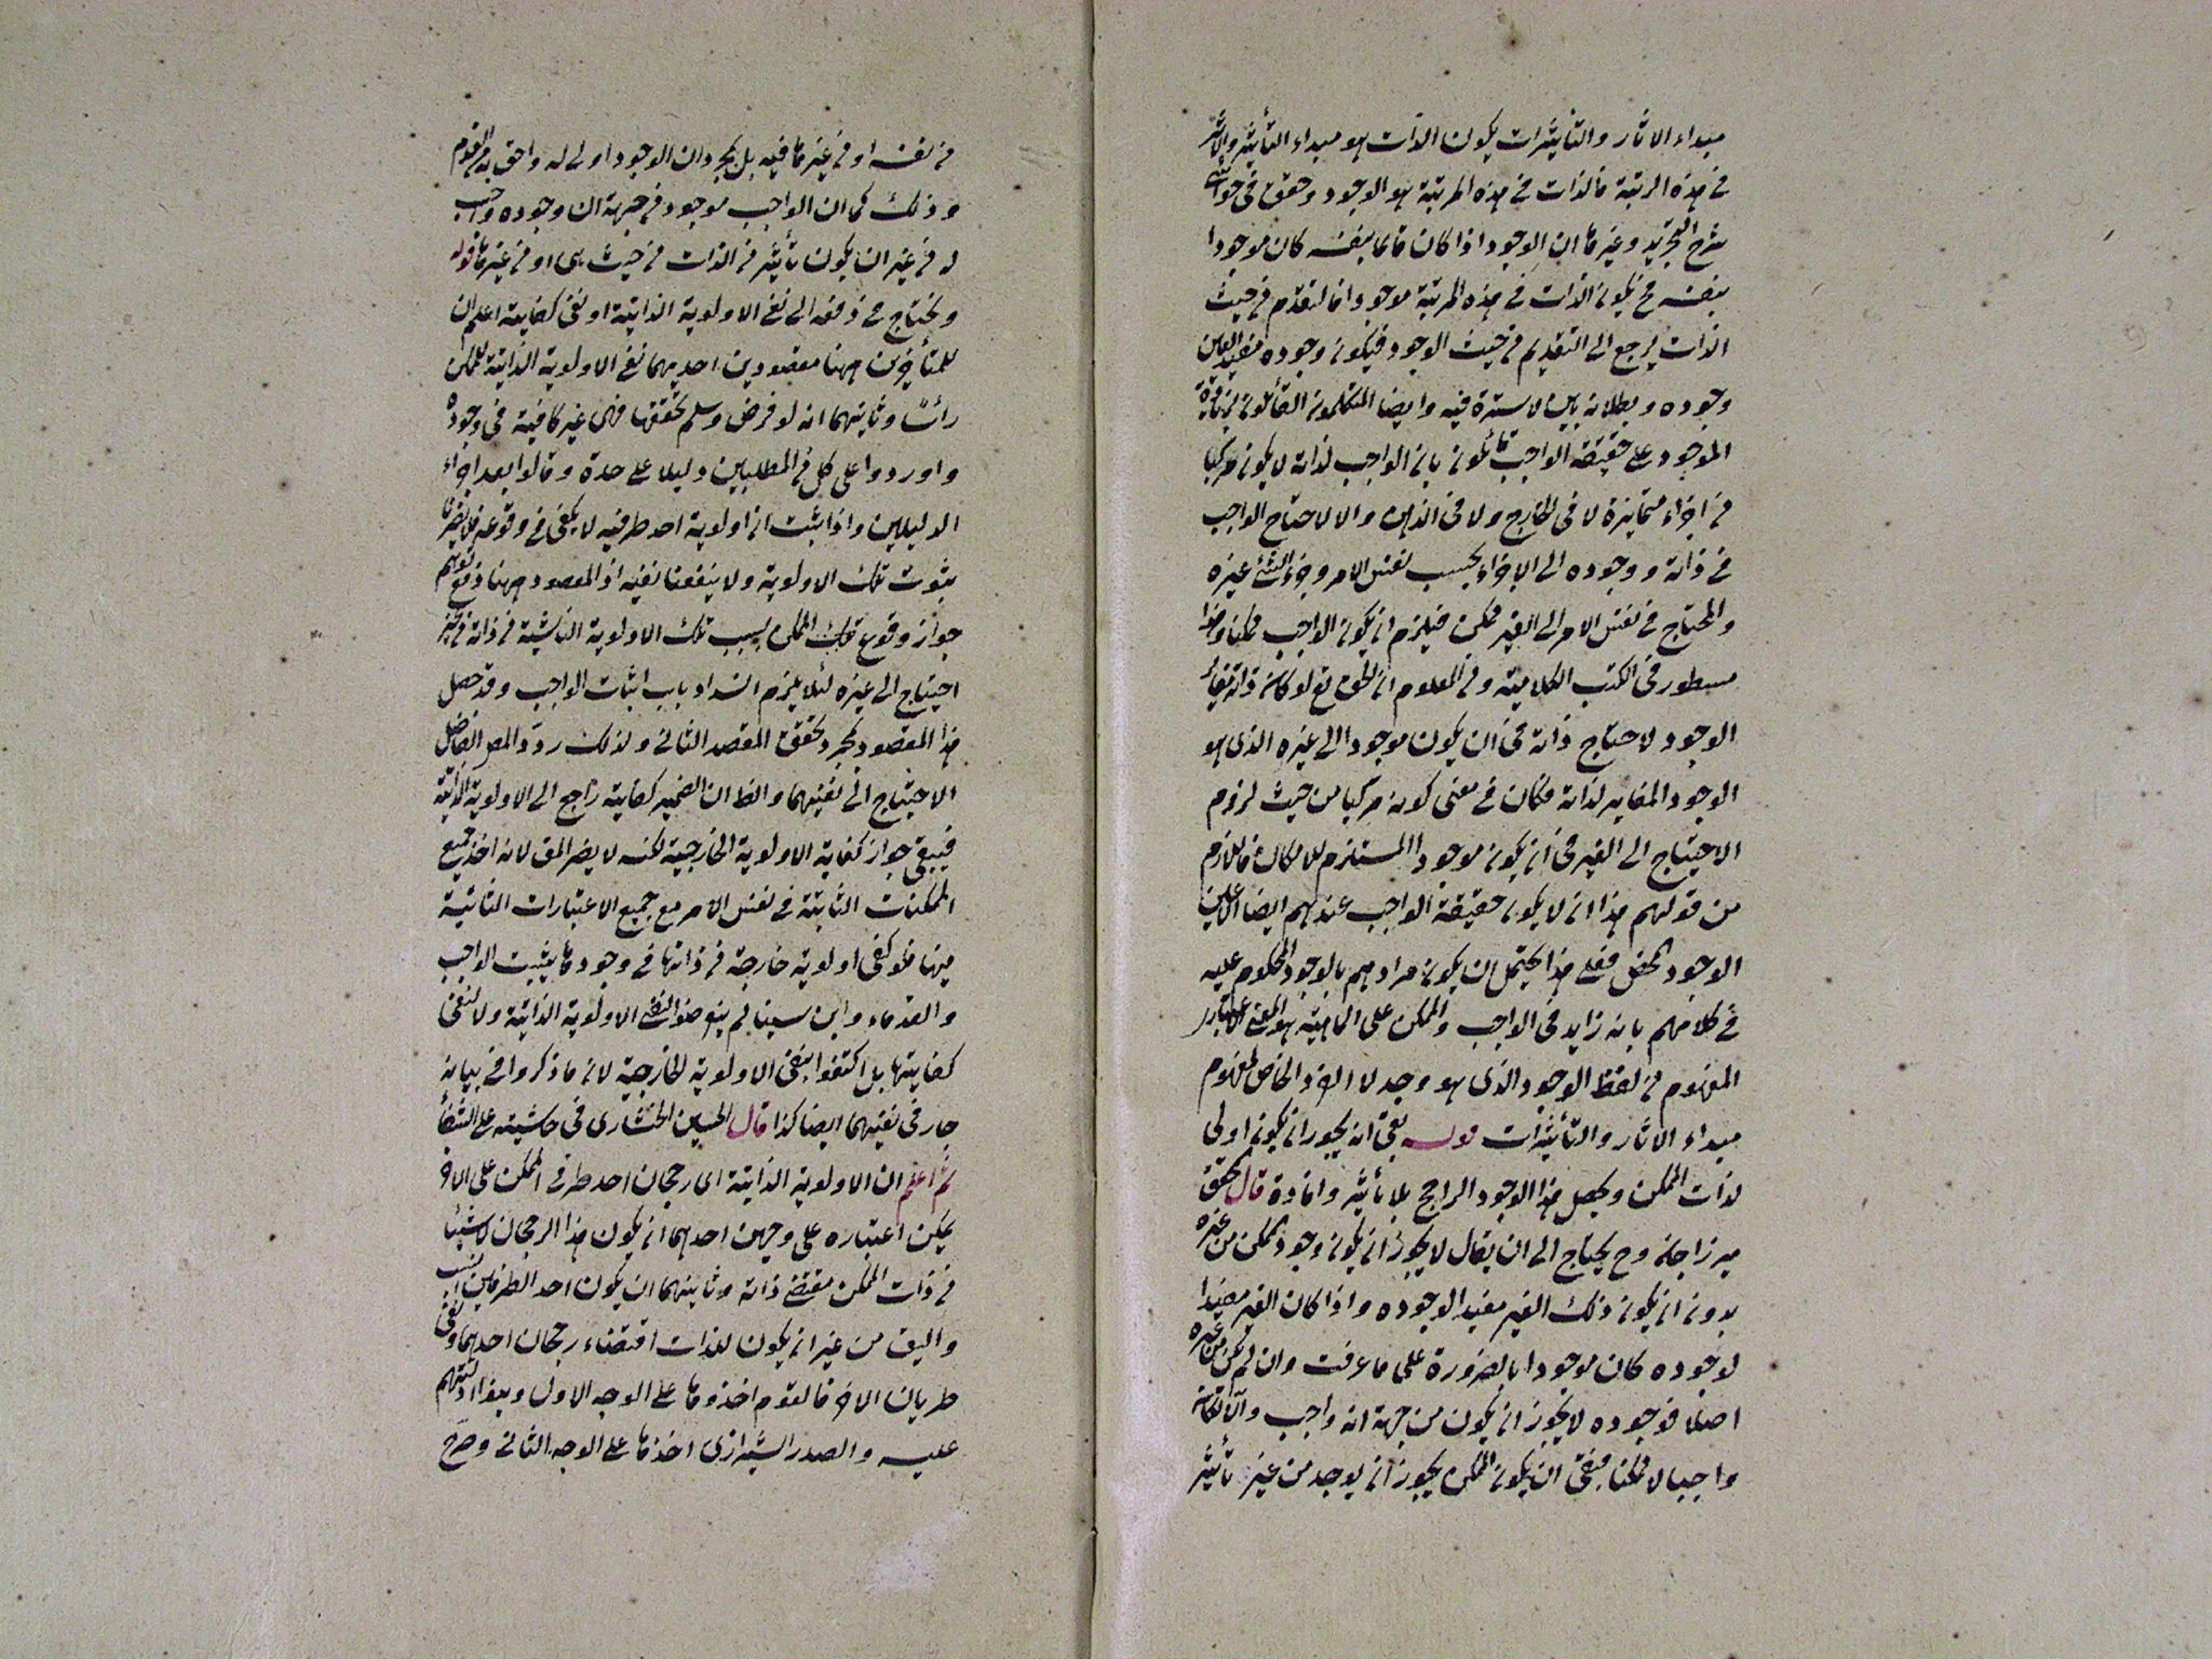 مبداء الاثار والتأثيرات يكون الذات هو مبداء التأثير والاثر
فى هذه الرتبة فالذات فى هذه المرتبة هو الوجود وحقق فى حواشى
شرح التجريد وغيرها ان الوجود اذا كان قائما بنفسه كان موجودا
بنفسه فح يكون الذات فى هذه المرتبة موجودا فالتقدم من حيث
الذات يرجع الى التقديم من حيث الوجود فيكون وجوده مفيدا لعين
وجوده وبطلانه بين لا سترة فيه وايضا المتكلمون القائلون بزيادة
الموجود على حقيقة الواجب قائلون بان الواجب لذاته لا يكون مركبا
من اجزاء متمايزة لا فى الخارج ولا فى الذهن والا لاحتاج الواجب
فى ذاته ووجوده الى الاجزاء بحسب نفس الامر وجزء الشئ غيره
والمحتاج فى نفس الامر الى الغير ممكن فيلزم ان يكون الواجب ممكنا وهذا
مسطور فى الكتب الكلامية ومن المعلوم ان الحق تع لو كان ذاته مغاير
الوجود لاحتاج ذاته فى ان يكون موجودا الى غيره الذى هو
الوجود المغاير لذاته فكان فى معنى كونه مركبا من حيث لزوم
الاحتياج الى الغير فى ان يكون موجودا المستلزم للامكان فاللازم
من قولهم هذا ان لا يكون حقيقة الواجب عندهم ايضا الا عين
الوجود المحض فعلى هذا يحتمل ان يكون مرادهم بالوجود المحكوم عليه
فى كلامهم بانه زايد فى الواجب والممكن على الماهية هو المعنى المتبادر
المفهوم من لفظ الوجود الذى هو وجد لا الفرد الخاص لمفهوم
مبداء الاثار والتأثيرات قوله بقى انه يجوز ان يكون اولى
لذات الممكن ويحصل هذا الوجود الراجح بلا تأثير وافادة قال المحقق
ميرزا جان وح يحتاج الى ان يقال لا يجوز ان يكون وجود الممكن من غيره
بدون ان يكون ذلك الغير مفيدا لوجوده واذا كان الغير مفيدا
لوجوده كان موجودا بالضرورة على ما عرفت وان لم يكن من غيره
اصلا فوجوده لا يجوز ان يكون من جهة انه واجب والا لكان
واجبا لا ممكنا فبقى ان يكون الممكن يجوز ان يوجد من غير تأثير
من نفسه او من غيرها فيه بل بمجرد ان الوجود اولى له واحق به من العدم
وذلك كما ان الواجب موجود من جهة ان وجوده واجب
له من غير ان يكون تأثير من الذات من حيث هى او من غيرها قوله
ويحتاج فى دفعه الى نفى الاولوية الذاتية او نفى كفايته اعلم ان
للمتأخرين ههنا مقصودين احديهما نفى الاولوية الذاتية للممكن
رأسًا وثانيهما انه لو فرض وسلم تحققها فهى غير كافية فى وجوده
واوردوا على كل من المطلبين دليلا على حدة وقالوا بعد اجراء
الدليلين واذا ثبت ان اولوية احد طرفيه لا يكفى فى وقوعه فلا يضرنا
ثبوت تلك الاولوية ولا ينفعنا نفيه اذ المقصود ههنا دفع توهم
جواز وقوع تلك الممكن بسبب تلك الاولوية الناشية من ذاته من غير
احتياج الى غيره لئلا يلزم انسداد باب اثبات الواجب وقد حصل
هذا المقصود بمجرد تحقق المقصد الثانى ولذلك ردّد المص الفاضل
الاحتياج الى نفيهما والظ ان الضمير كفايته راجع الى الاولوية الذاتية
فيبقى جواز كفاية الاولوية الخارجية لكنه لا يضر المق لانه اخذ جميع
الممكنات الثابتة فى نفس الامر مع جميع الاعتبارات الثابتة
منها فلو كفى اولوية خارجة من ذاتها فى وجودها يثبت الواجب
والقدماء وابن سينا لم يتعرضوا لنفى الاولوية الذاتية ولا لنفى
كفايتها بل اكتفوا بنفى الاولوية الخارجية لان ما ذكروا فى بيانه
جار فى نفيهما ايضا كذا قال الحسين الخنشارى فى حاشيته على الشفأ
ثم اعلم ان الاولوية الذاتية اى رجحان احد طرفى الممكن على الاخر
يمكن اعتباره على وجهين احدهما ان يكون هذا الرجحان ناشيئا
من ذات الممكن مقتضى ذاته وثانيهما ان يكون احد الطرفين انسب
واليق من غير ان يكون للذات اقتضاء رجحان احدهما ونفى
طريان الاخر فالقوم اخذوها على الوجه الاول وبنوا ادلتهم
عليه والصدر الشيرازى اخذها على الوجه الثانى وصرح